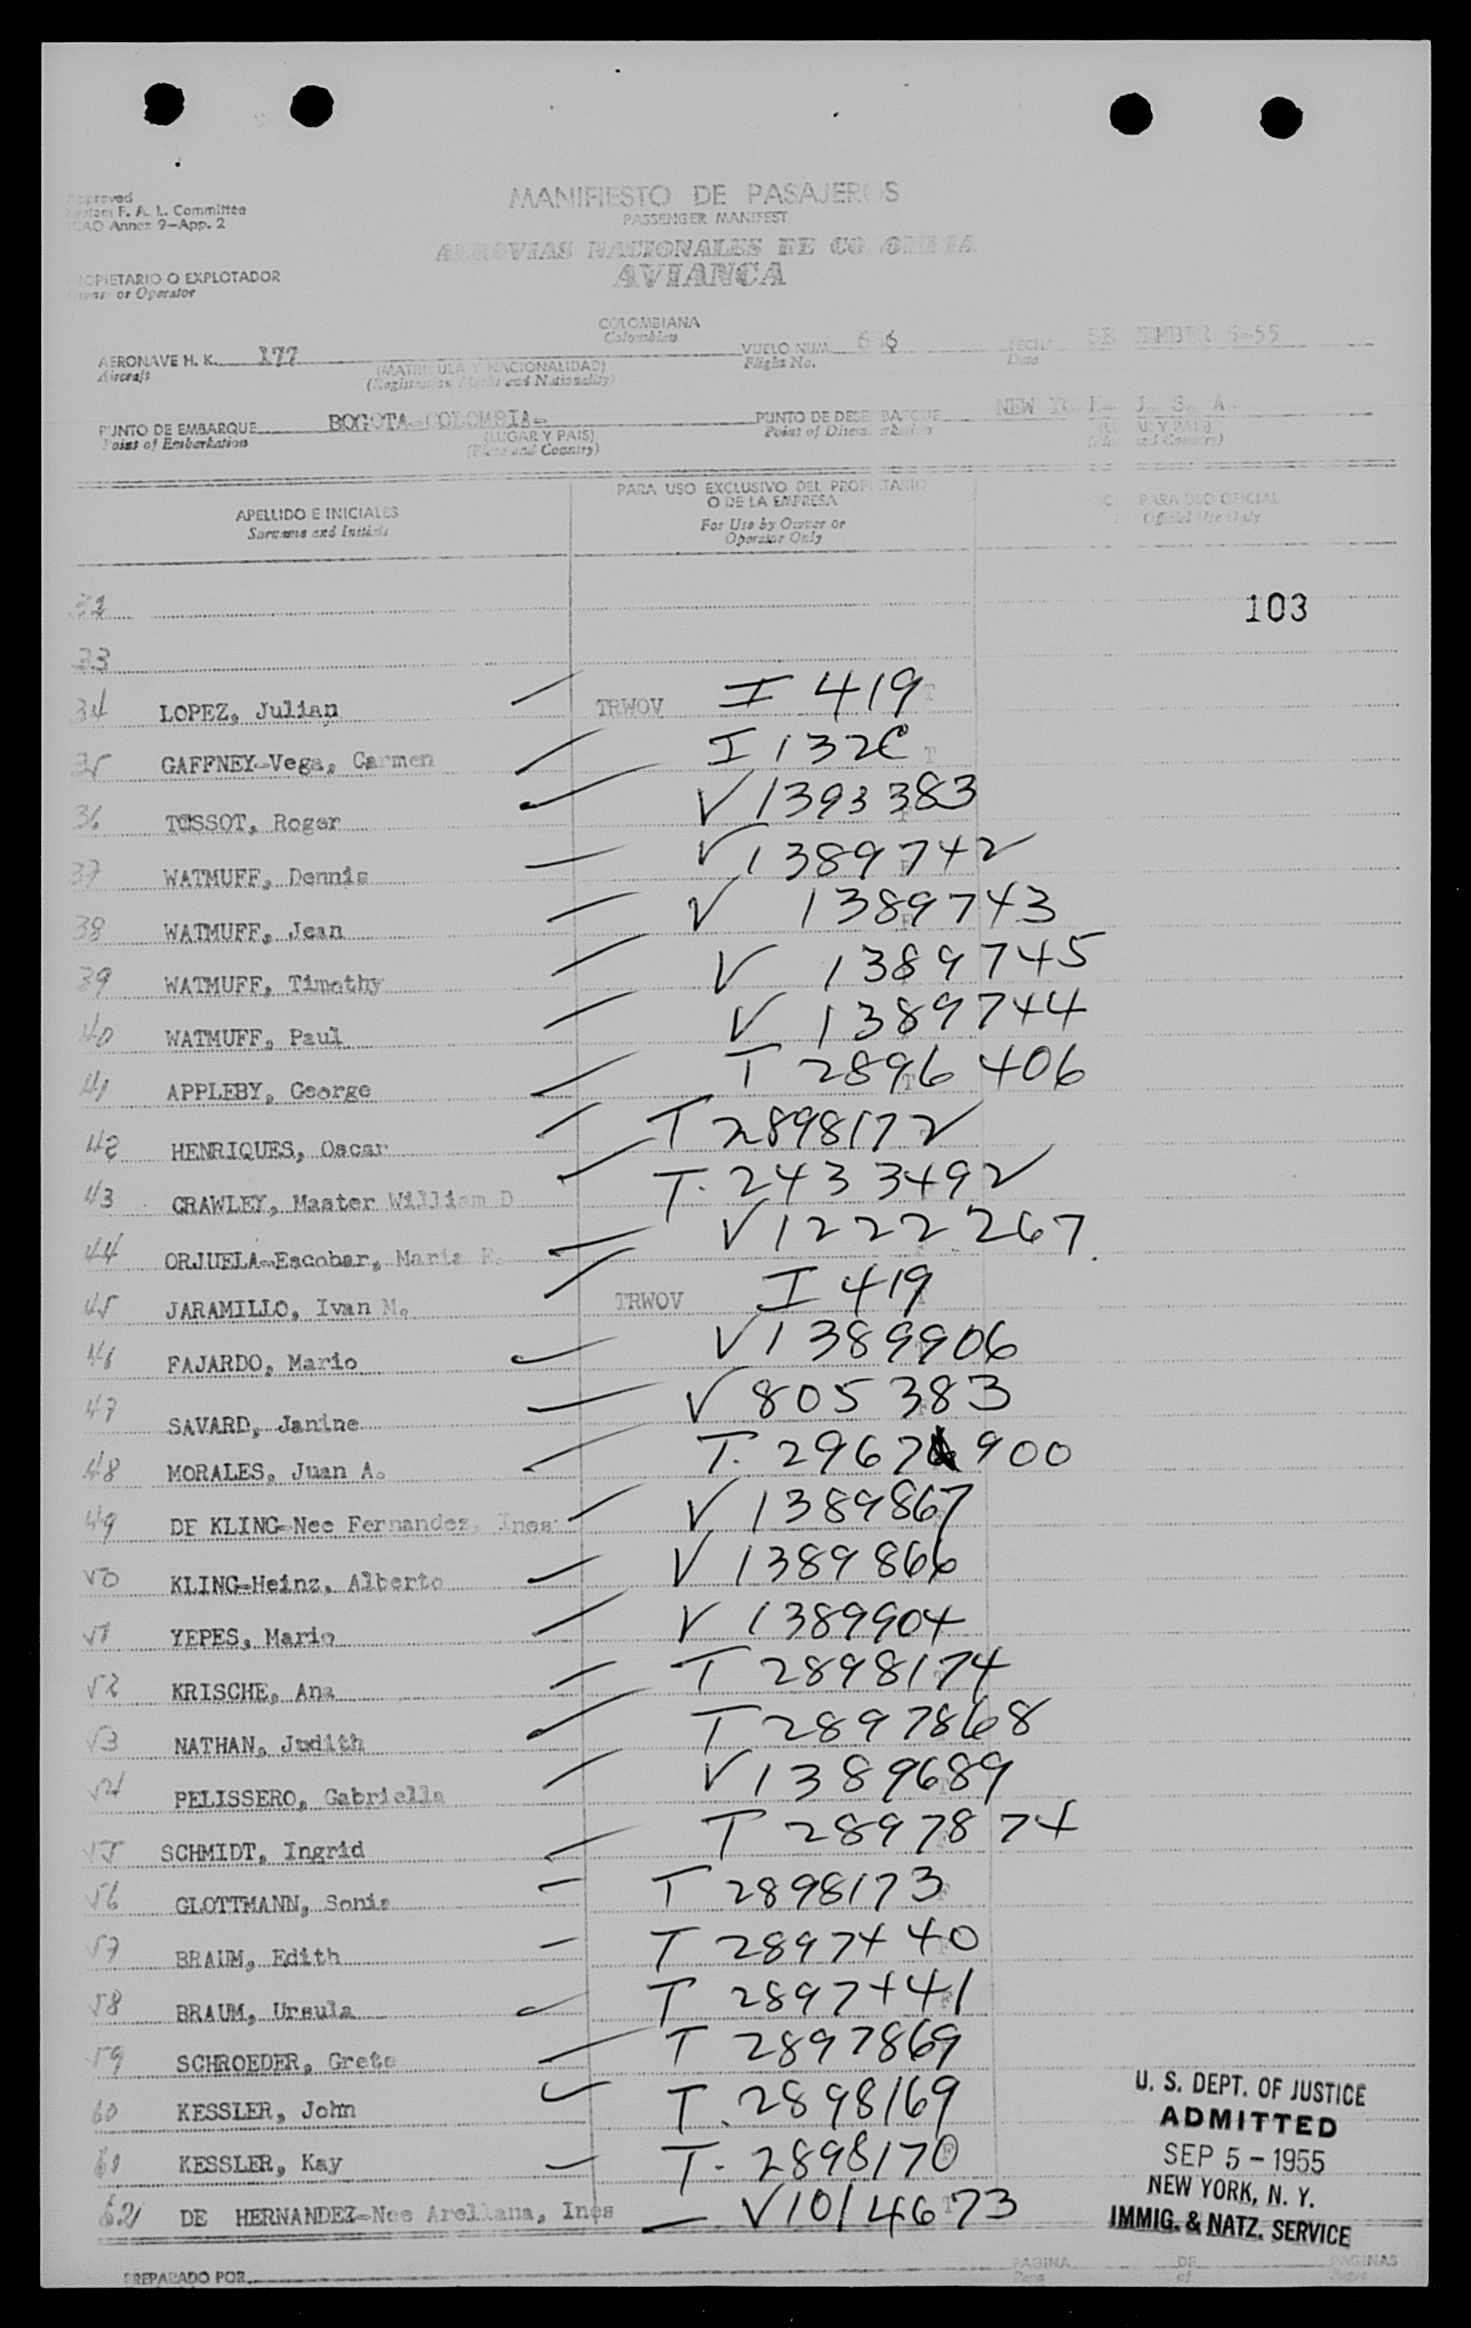 MANIFIESTO DE PASAJEROS
PASSENGER MANIFEST
F. A. L. Committee
Annex 9-App. 2
AEROVIAS NACIONALES DE COLOMBIA
AVIANCA
O EXPLOTADOR
or Operator
COLOMBIANA
Colombian
AERONAVE H. K. 177 VUELO NUM. FECHA SEPTEMBER 5-55
Aircraft (MATRICULA Y NACIONALIDAD) Flight No. Date
(Registration Marks and Nationality)
PUNTO DE EMBARQUE BOGOTA-COLOMBIA- PUNTO DE DESEMBARQUE NEW YORK- U. S. A.
Point of Embarkation (LUGAR Y PAIS) Point of Disembarkation
(Place and Country) (Place and Country)
APELLIDO E INICIALES
Surname and Initials
PARA USO EXCLUSIVO DEL PROPIETARIO
O DE LA EMPRESA
For Use by Owner or
Operator Only
PARA USO OFICIAL
Official Use Only
32 103
33
34 LOPEZ, Julian TRWOV I 419 T
35 GAFFNEY-Vega, Carmen I 132C T
36 TOSSOT, Roger V 1393383
37 WATMUFF, Dennis V 1389742
38 WATMUFF, Jean V 1389743
39 WATMUFF, Timothy V 1389745
40 WATMUFF, Paul V 1389744
41 APPLEBY, George T 2896406
42 HENRIQUES, Oscar T 2898172
43 CRAWLEY, Master William D T. 2433492
44 ORJUELA-Escobar, Maria E. V 1222267.
45 JARAMILLO, Ivan M. TRWOV I 419
46 FAJARDO, Mario V 1389906
47 SAVARD, Janine V 805383
48 MORALES, Juan A. T. 2967 900
49 DE KLING-Nee Fernandez, Ines V 1389867
50 KLING-Heinz, Alberto V 1389866
51 YEPES, Mario V 1389904
52 KRISCHE, Ana T 2898174
53 NATHAN, Judith T 2897868
54 PELISSERO, Gabriella V 1389689
55 SCHMIDT, Ingrid T 2897874
56 GLOTTMANN, Sonia T 2898173
57 BRAUM, Edith T 2897440
58 BRAUM, Ursula T 2897441
59 SCHROEDER, Grete T 2897869
60 KESSLER, John T. 2898169
61 KESSLER, Kay T. 2898170
62 DE HERNANDEZ-Nee Arellana, Ines V 1014673
U. S. DEPT. OF JUSTICE
ADMITTED
SEP 5 - 1955
NEW YORK, N. Y.
IMMIG. & NATZ. SERVICE
PREPARADO POR PAGINA DE PAGINAS
Page of Pages